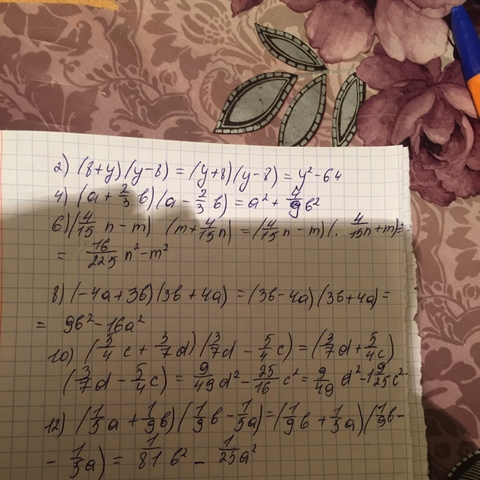 2) (8+y)(y-8) = (y+8)(y-8) = y²-64
4) (a + 2/3 b)(a - 2/3 b) = a² + 4/9 b²
6) (4/15 n - m) (m + 4/15 n) = (4/15 n - m)(. 4/15 n + m) =
= 16/225 n² - m²
8) (-4a + 3b)(3b + 4a) = (3b - 4a)(3b + 4a) =
= 9b² - 16a²
10) (5/4 c + 3/7 d)(3/7 d - 5/4 c) = (3/7 d + 5/4 c)
(3/7 d - 5/4 c) = 9/49 d² - 25/16 c² = 9/49 d² - c²
12) (1/5 a + 1/9 b)(1/9 b - 1/5 a) = (1/9 b + 1/5 a)(1/9 b -
- 1/5 a) = 1/81 b² - 1/25 a²